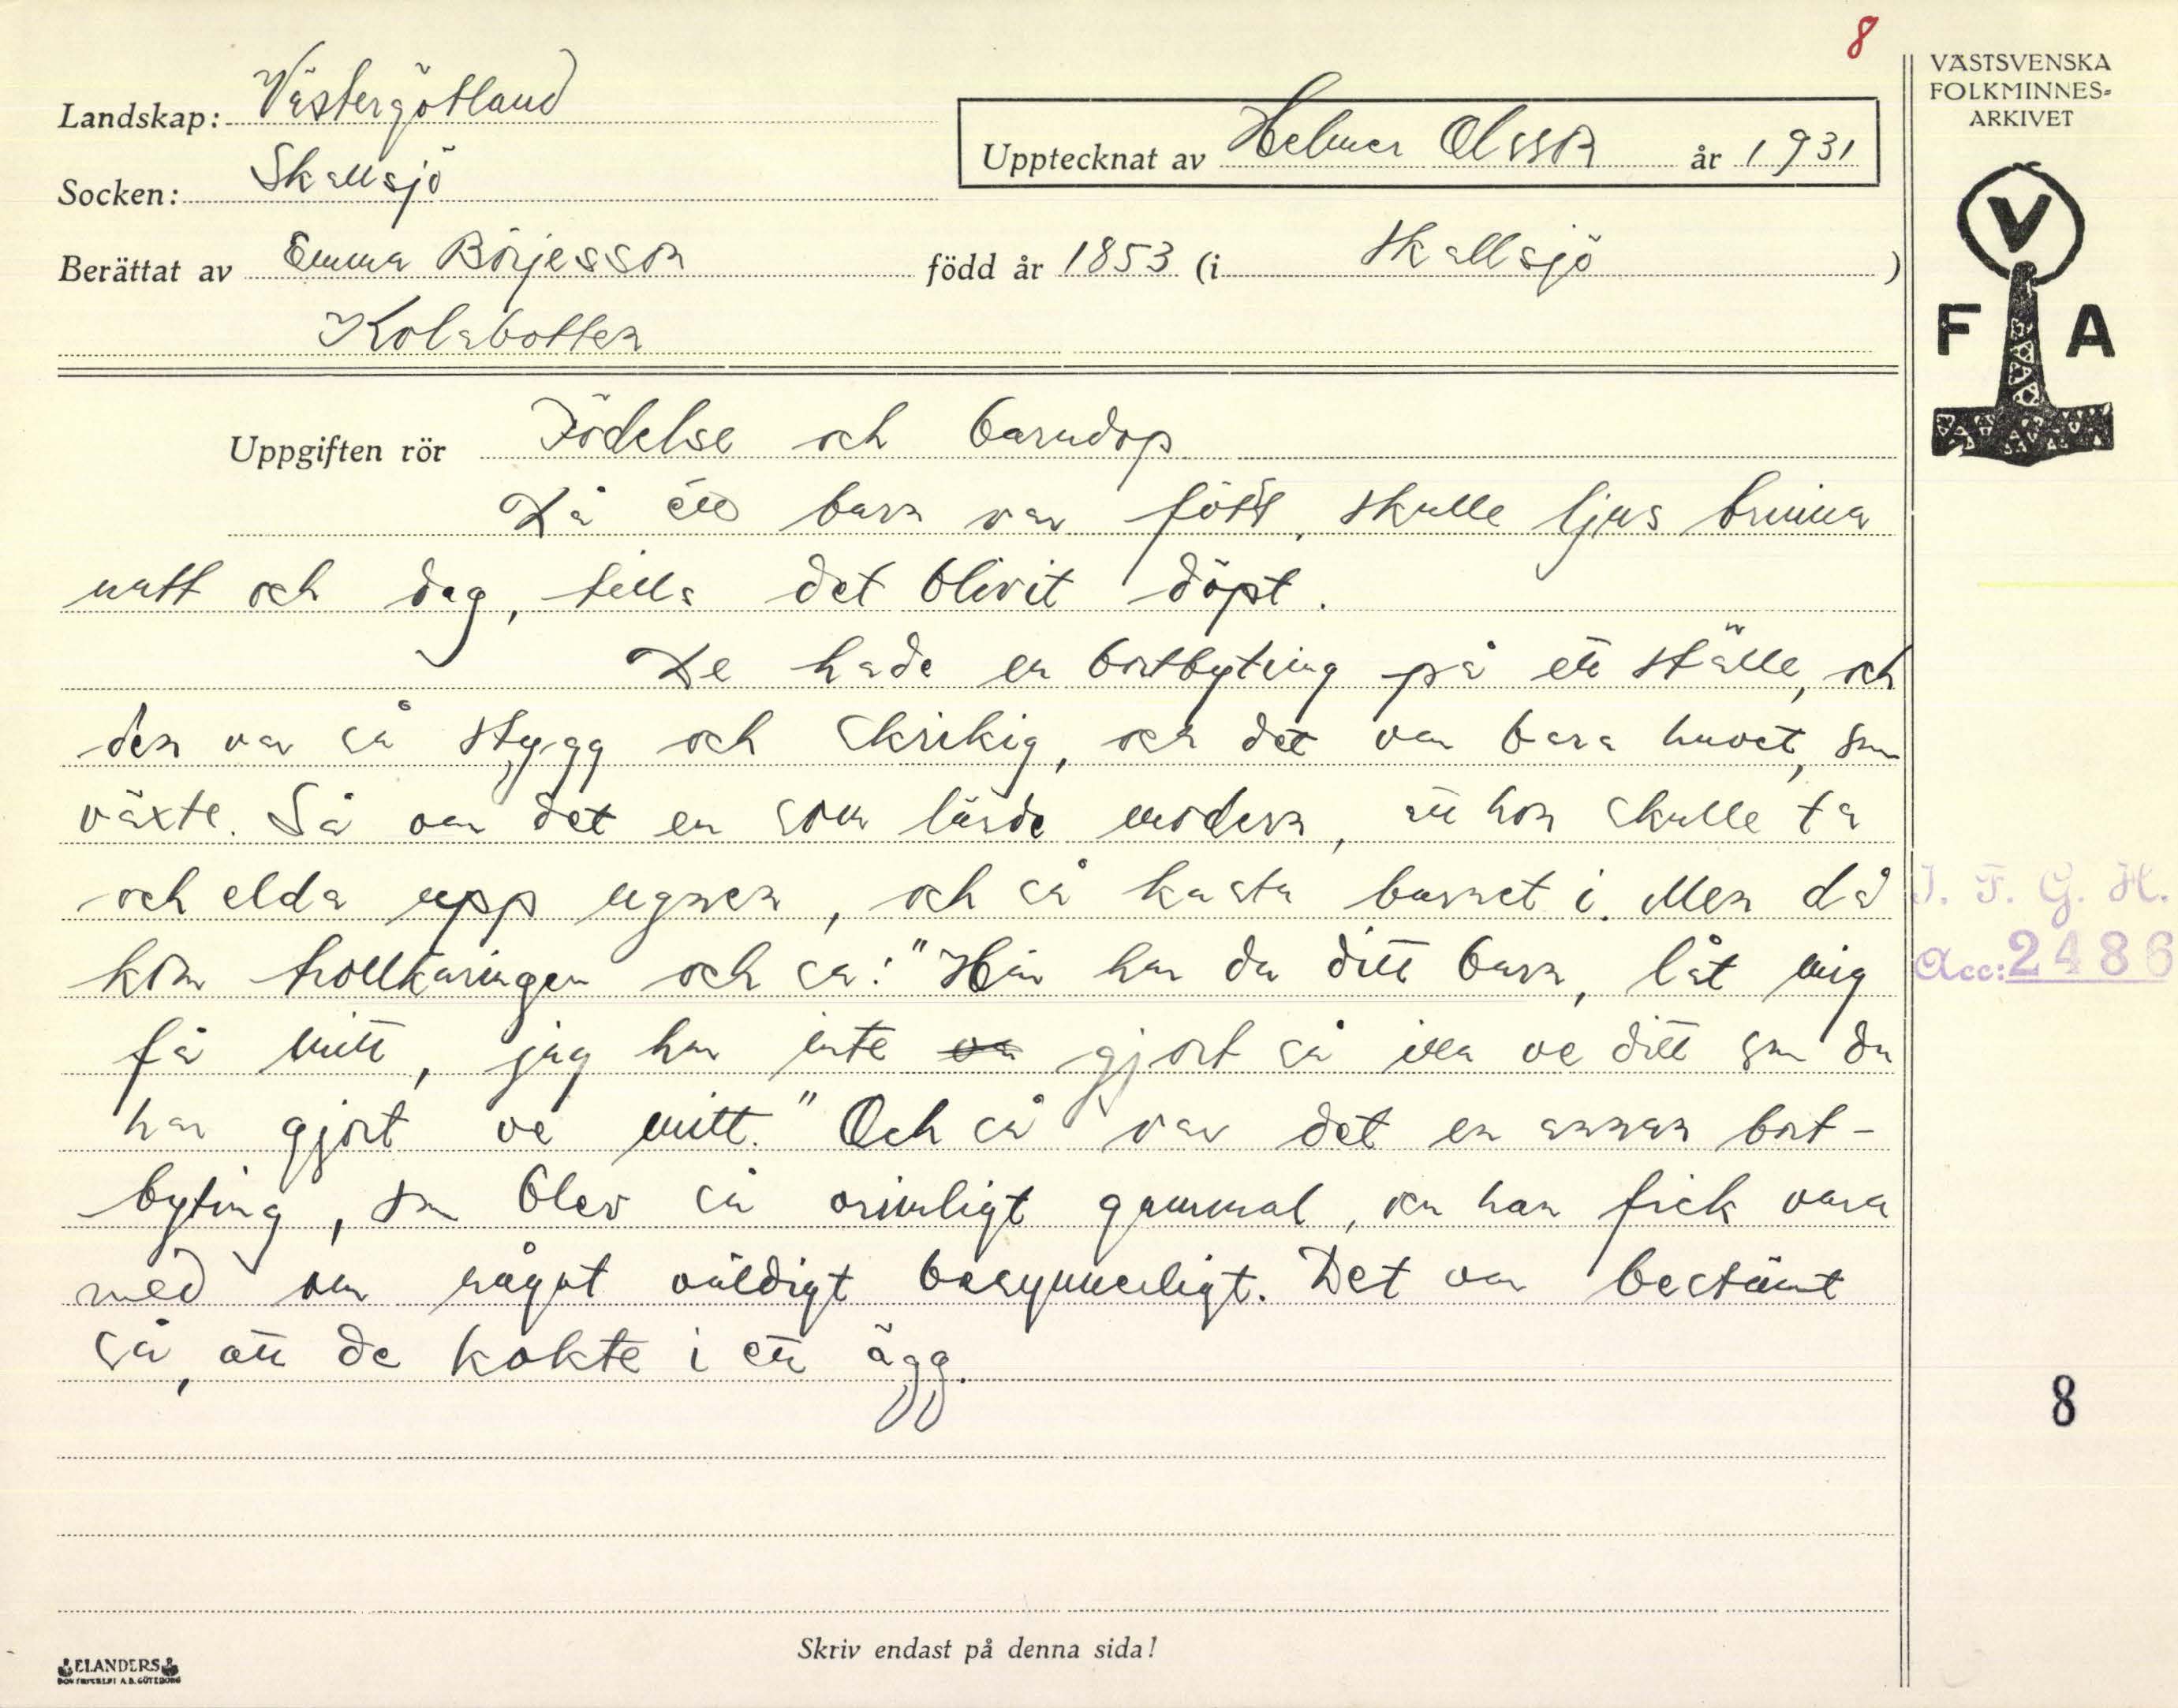 8
VÄSTSVENSKA
FOLKMINNES-
ARKIVET
Landskap: Västergötland
Upptecknat av Helmer Olsson år 1931
Socken: Skallsjö
Berättat av Emma Börjesson född år 1853 (i Skallsjö)
Kolabotten
V
F A
Uppgiften rör Födelse och barndop
Då ett barn var fött, skulle ljus brinna
natt och dag, tills det blivit döpt.
De hade en bortbyting på ett ställe, och
den var så stygg och skrikig, och det var bara huvet, som
växte. Så var det en som lärde modern, att hon skulle ta
och elda upp ugnen, och så kasta barnet i. Men då
kom trollkäringen och sa: "Här har du ditt barn, låt mig
få mitt, jag har inte va gjort så illa ve ditt som du
har gjort ve mitt." Och så var det en annan bort-
byting, som blev så orimligt gammal, och han fick vara
med om något väldigt besynnerligt. Det var bestämt
så, att de kokte i ett ägg.
I. F. G. H.
Acc: 2486
8
Skriv endast på denna sida!
ELANDERS
BOKTRYCKERI A.B. GÖTEBORG